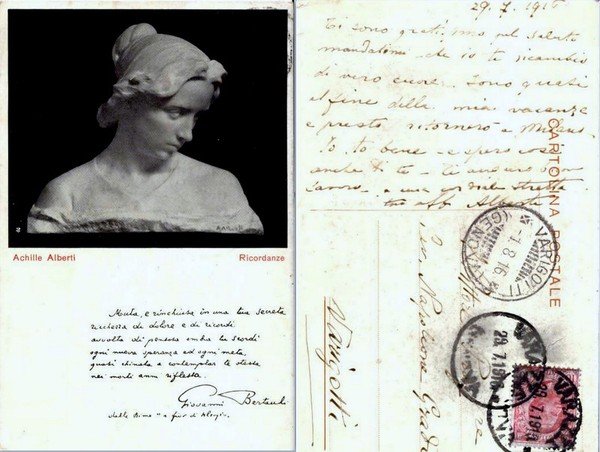 Achille Alberti Ricordanze
Muta, e rinchiusa in una tua secreta
ricchezza di dolore e di ricordi
avvolta di pensosa ombra tu scordi
ogni nuova speranza ed ogni meta,
quasi chinata a contemplar te stessa
nei morti anni riflessa.
Giovanni Bertacchi
dalle Rime "a fior di
29.7.1916
Ti sono gratissimo pel saluto
mandatomi che io ti ricambio
di vero cuore. Sono quasi
al fine delle mie vacanze
e presto ritornerò a Milano
Io sto bene e spero così
anche di te - ti auguro buon
lavoro - a una cordiale stretta
tuo aff Alberti
CARTOLINA POSTALE
VARIGOTTI
(GENOVA)
1.8.16
Napoleone
Varigotti
29.7.1916
29.7.1916